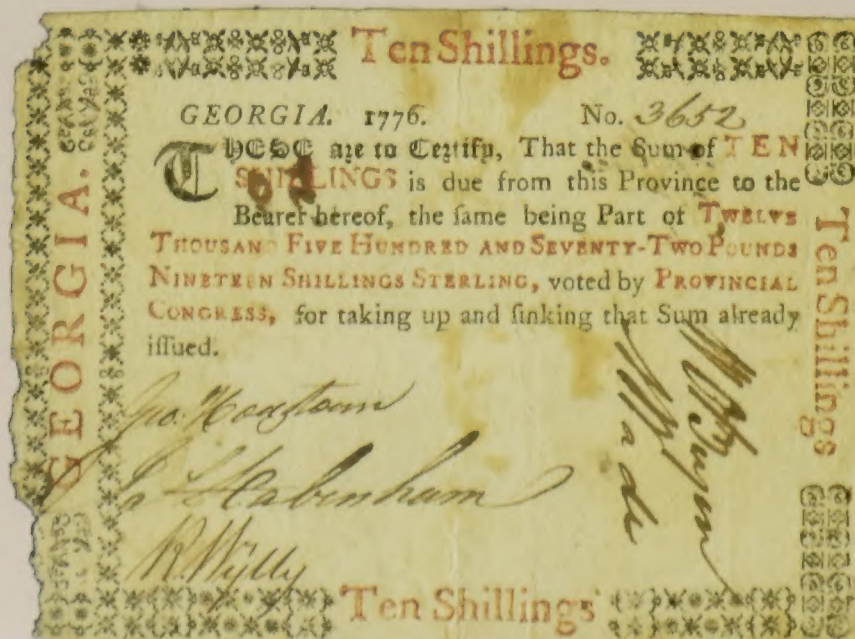 Ten Shillings.
GEORGIA. 1776. No. 3652
THESE are to Certify, That the Sum of TEN
SHILLINGS is due from this Province to the
Bearer hereof, the ſame being Part of TWELVE
THOUSAND FIVE HUNDRED AND SEVENTY-TWO POUNDS
NINETEEN SHILLINGS STERLING, voted by PROVINCIAL
CONGRESS, for taking up and ſinking that Sum already
iſſued.
Jno. Houstoun
Js Habersham
R. Wylly
Ten Shillings
GEORGIA.
Ten Shillings